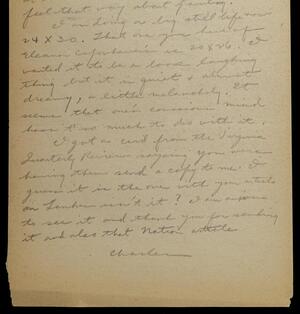 feel that way about fantasy.
I am doing a big still life now
24 X 30. That one you have of
Eleanor is 20 X 26. I
wanted it to be a loose laughing
thing but it is quiet & almost
dreamy, a little melancholy. It
seems that one's conscious mind
hasn't so much to do with it.
I got a card from the Virginia
Quarterly Review saying you were
having them send a copy to me. I
guess it is the one with your article
on isn't it? I am anxious
to see it and thank you for sending
it and also that Nation article
Charles